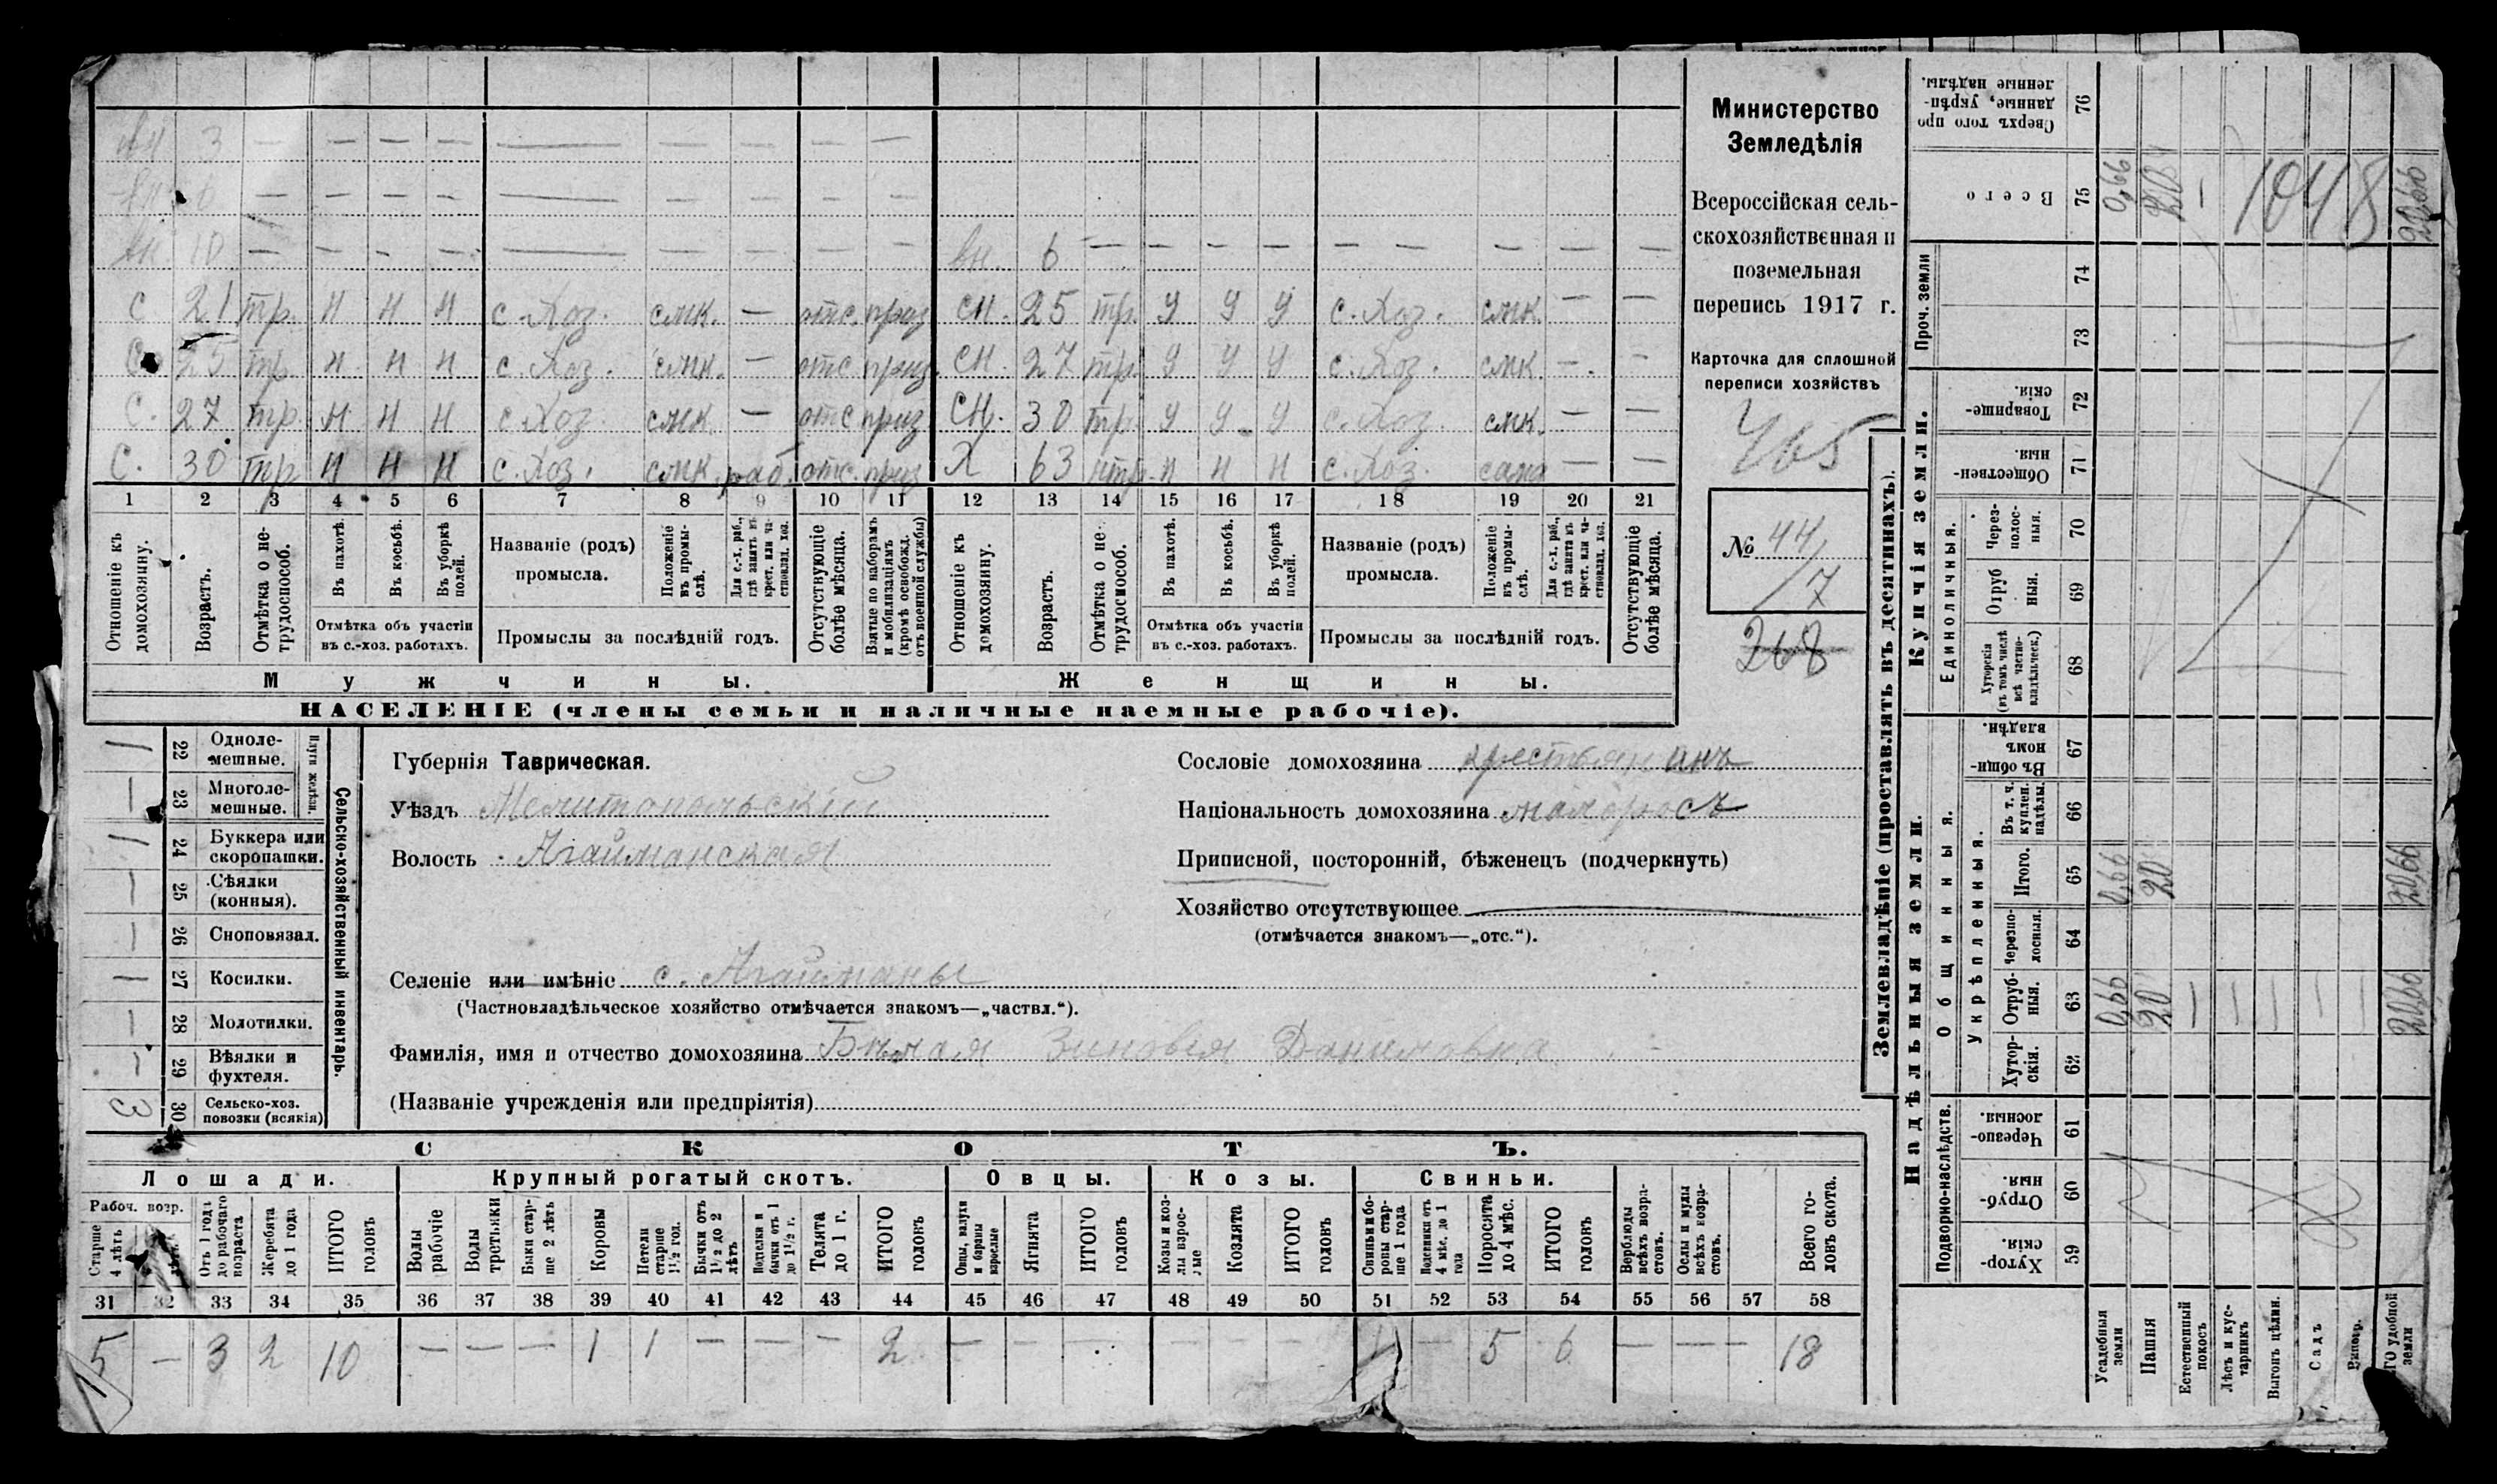 вн 3 — — — — — — — — —
вн 6 — — — — — — — — —
вн. 10 — — — — — — — — — вн. 6 — — — — — — — —
с 21 тр. н н н с. Хоз. смк. — отс. приз сн. 25 тр. у у у с. Хоз. смк. — —
с 25 тр. н н н с. Хоз. смк. — отс приз. сн. 27 тр. у у у с. Хоз. смк. — —
с. 27 тр. н н н с. Хоз. смк. — отс приз сн. 30 тр. у у у с. Хоз. смк. — —
с. 30 тр н н н с. Хоз. смк. раб. отс. приз Х 63 нтр. н н н с. Хоз. сама — —
1 2 3 4 5 6 7 8 9 10 11 12 13 14 15 16 17 18 19 20 21
Отношеніе къ домохозяину.
Возрастъ.
Отмѣтка о не-трудоспособ.
Въ пахотѣ.
Въ косьбѣ.
Въ уборкѣ полей.
Отмѣтка объ участіи
въ с.-хоз. работахъ.
Названіе (родъ)
промысла.
Положеніе въ промы-слѣ.
Для с.-х. раб., гдѣ занятъ въ крест. или ча-стновлад. хоз.
Промыслы за послѣдній годъ.
Отсутствующіе болѣе мѣсяца.
Взятые по наборамъ и мобилизаціямъ (кромѣ освобожд. отъ военной службы)
Отношеніе къ домохозяину.
Возрастъ.
Отмѣтка о не-трудоспособ.
Въ пахотѣ.
Въ косьбѣ.
Въ уборкѣ полей.
Отмѣтка объ участіи
въ с.-хоз. работахъ.
Названіе (родъ)
промысла.
Положеніе въ промы-слѣ.
Для с.-х. раб., гдѣ занята въ крест. или ча-стновлад. хоз.
Промыслы за послѣдній годъ.
Отсутствующіе болѣе мѣсяца.
Мужчины. Женщины.
НАСЕЛЕНІЕ (члены семьи и наличные наемные рабочіе).
Министерство
Земледѣлія
Всероссійская сель-
скохозяйственная и
поземельная
перепись 1917 г.
Карточка для сплошной
переписи хозяйствъ
465
№ 44/7
268
Сельско-хозяйственный инвентарь.
Плуги желѣзн.
— 22 Одноле-мешные.
— 23 Многоле-мешные.
— 24 Буккера или скоропашки.
— 25 Сѣялки (конныя).
— 26 Сноповязал.
— 27 Косилки.
— 28 Молотилки.
— 29 Вѣялки и фухтеля.
3 30 Сельско-хоз. повозки (всякія)
Губернія Таврическая.
Уѣздъ Мелитопольскій
Волость Агайманская
Селеніе или имѣніе с. Агайманы
(Частновладѣльческое хозяйство отмѣчается знакомъ—„частвл.“).
Фамилія, имя и отчество домохозяина Бѣлая Зиновія Даниловна
(Названіе учрежденія или предпріятія)
Сословіе домохозяина крестьянинъ
Національность домохозяина малоросъ
Приписной, посторонній, бѣженецъ (подчеркнуть)
Хозяйство отсутствующее
(отмѣчается знакомъ—„отс.“).
СКОТЪ.
Лошади. Крупный рогатый скотъ. Овцы. Козы. Свиньи.
Рабоч. возр.
Старше 4 лѣтъ
Отъ 1 года до рабочаго возраста
Жеребята до 1 года
ИТОГО головъ
Волы рабочіе
Волы третьяки
Быки стар-ше 2 лѣтъ
Коровы
Нетели старше 1½ год.
Бычки отъ 1½ до 2 лѣтъ
Подтелки и бычки отъ 1 до 1½ г.
Телята до 1 г.
ИТОГО головъ
Овцы, валухи и бараны взрослые
Ягнята
ИТОГО головъ
Козы и коз-лы взрос-лые
Козлята
ИТОГО головъ
Свиньи и бо-ровы стар-ше 1 года
Подсвинки отъ 4 мѣс. до 1 года
Поросята до 4 мѣс.
ИТОГО головъ
Верблюды всѣхъ возра-стовъ.
Ослы и мулы всѣхъ возра-стовъ.
Всего го-ловъ скота.
31 32 33 34 35 36 37 38 39 40 41 42 43 44 45 46 47 48 49 50 51 52 53 54 55 56 57 58
5 — 3 2 10 — — — 1 1 — — — 2 — — — — — — 1 — 5 6 — — — 18
Землевладѣніе (проставлять въ десятинахъ).
Купчія земли.
Надѣльныя земли.
Сверхъ того про данные, укрѣп-ленные надѣлы. 76
Всего 75 0,66 20 — 1048 20,66
Проч. земли 74
73
Товарище-скія. 72
Обществен-ныя. 71
Единоличныя.
Через-полос-ныя. 70
Отруб ныя. 69
Хуторскія (въ томъ числѣ всѣ частно-владѣльческ.) 68
Общинныя.
Укрѣпленныя.
Въ общи-номъ владѣн. 67
Въ т. ч. куплен. надѣлы. 66
Итого. 65 0,66 20 20,66
Черезпо-лосныя. 64
Отруб-ныя. 63 0,66 20 — — — — — 20,66
Хутор-скія. 62
Подворно-наслѣдств.
Черезпо-лосныя. 61
Отруб-ныя. 60
Хутор-скія. 59
Усадебныя земли
Пашня
Естественный покосъ
Лѣсъ и кус-тарникъ
Выгонъ цѣлин.
Садъ
Виногр.
ГО удобной земли